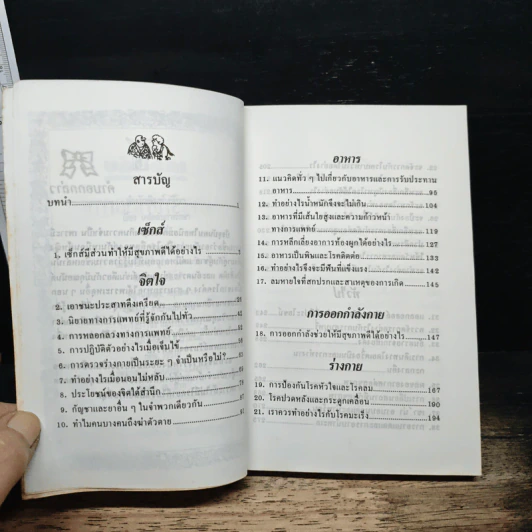 สารบัญ
บทนำ
เซ็กส์
1. เซ็กส์มีส่วนทำให้มีสุขภาพดีได้อย่างไร
จิตใจ
2. เอาชนะประสาทตึงเครียด
3. นิยายทางการแพทย์ที่รู้จักกันไปทั่ว
4. การหลอกลวงทางการแพทย์
5. การปฏิบัติตัวอย่างไรเมื่อเจ็บไข้
6. การตรวจร่างกายเป็นระยะ ๆ จำเป็นหรือไม่?
7. ทำอย่างไรเมื่อนอนไม่หลับ
8. ประโยชน์ของจิตใต้สำนึก
9. กัญชาและยาอื่น ๆ ในจำพวกเดียวกัน
10. ทำไมคนบางคนถึงฆ่าตัวตาย
อาหาร
11. แนวคิดทั่ว ๆ ไปเกี่ยวกับอาหารและการรับประทาน
อาหาร 95
12. ทำอย่างไรน้ำหนักจึงจะไม่เกิน 104
13. อาหารที่มีเส้นใยสูงและความก้าวหน้า
ทางการแพทย์ 119
14. การหลีกเลี่ยงอาการท้องผูกได้อย่างไร 127
15. อาหารเป็นพิษและโรคติดต่อ 133
16. ทำอย่างไรจึงจะมีฟันที่แข็งแรง 142
17. ลมหายใจที่สกปรกและสาเหตุของการเกิด 145
การออกกำลังกาย
18. การออกกำลังช่วยให้มีสุขภาพดีได้อย่างไร 147
ร่างกาย
19. การป้องกันโรคหัวใจและโรคลม 167
20. โรคปวดหลังและกระดูกเคลื่อน 190
21. เราควรทำอย่างไรกับโรคมะเร็ง 194